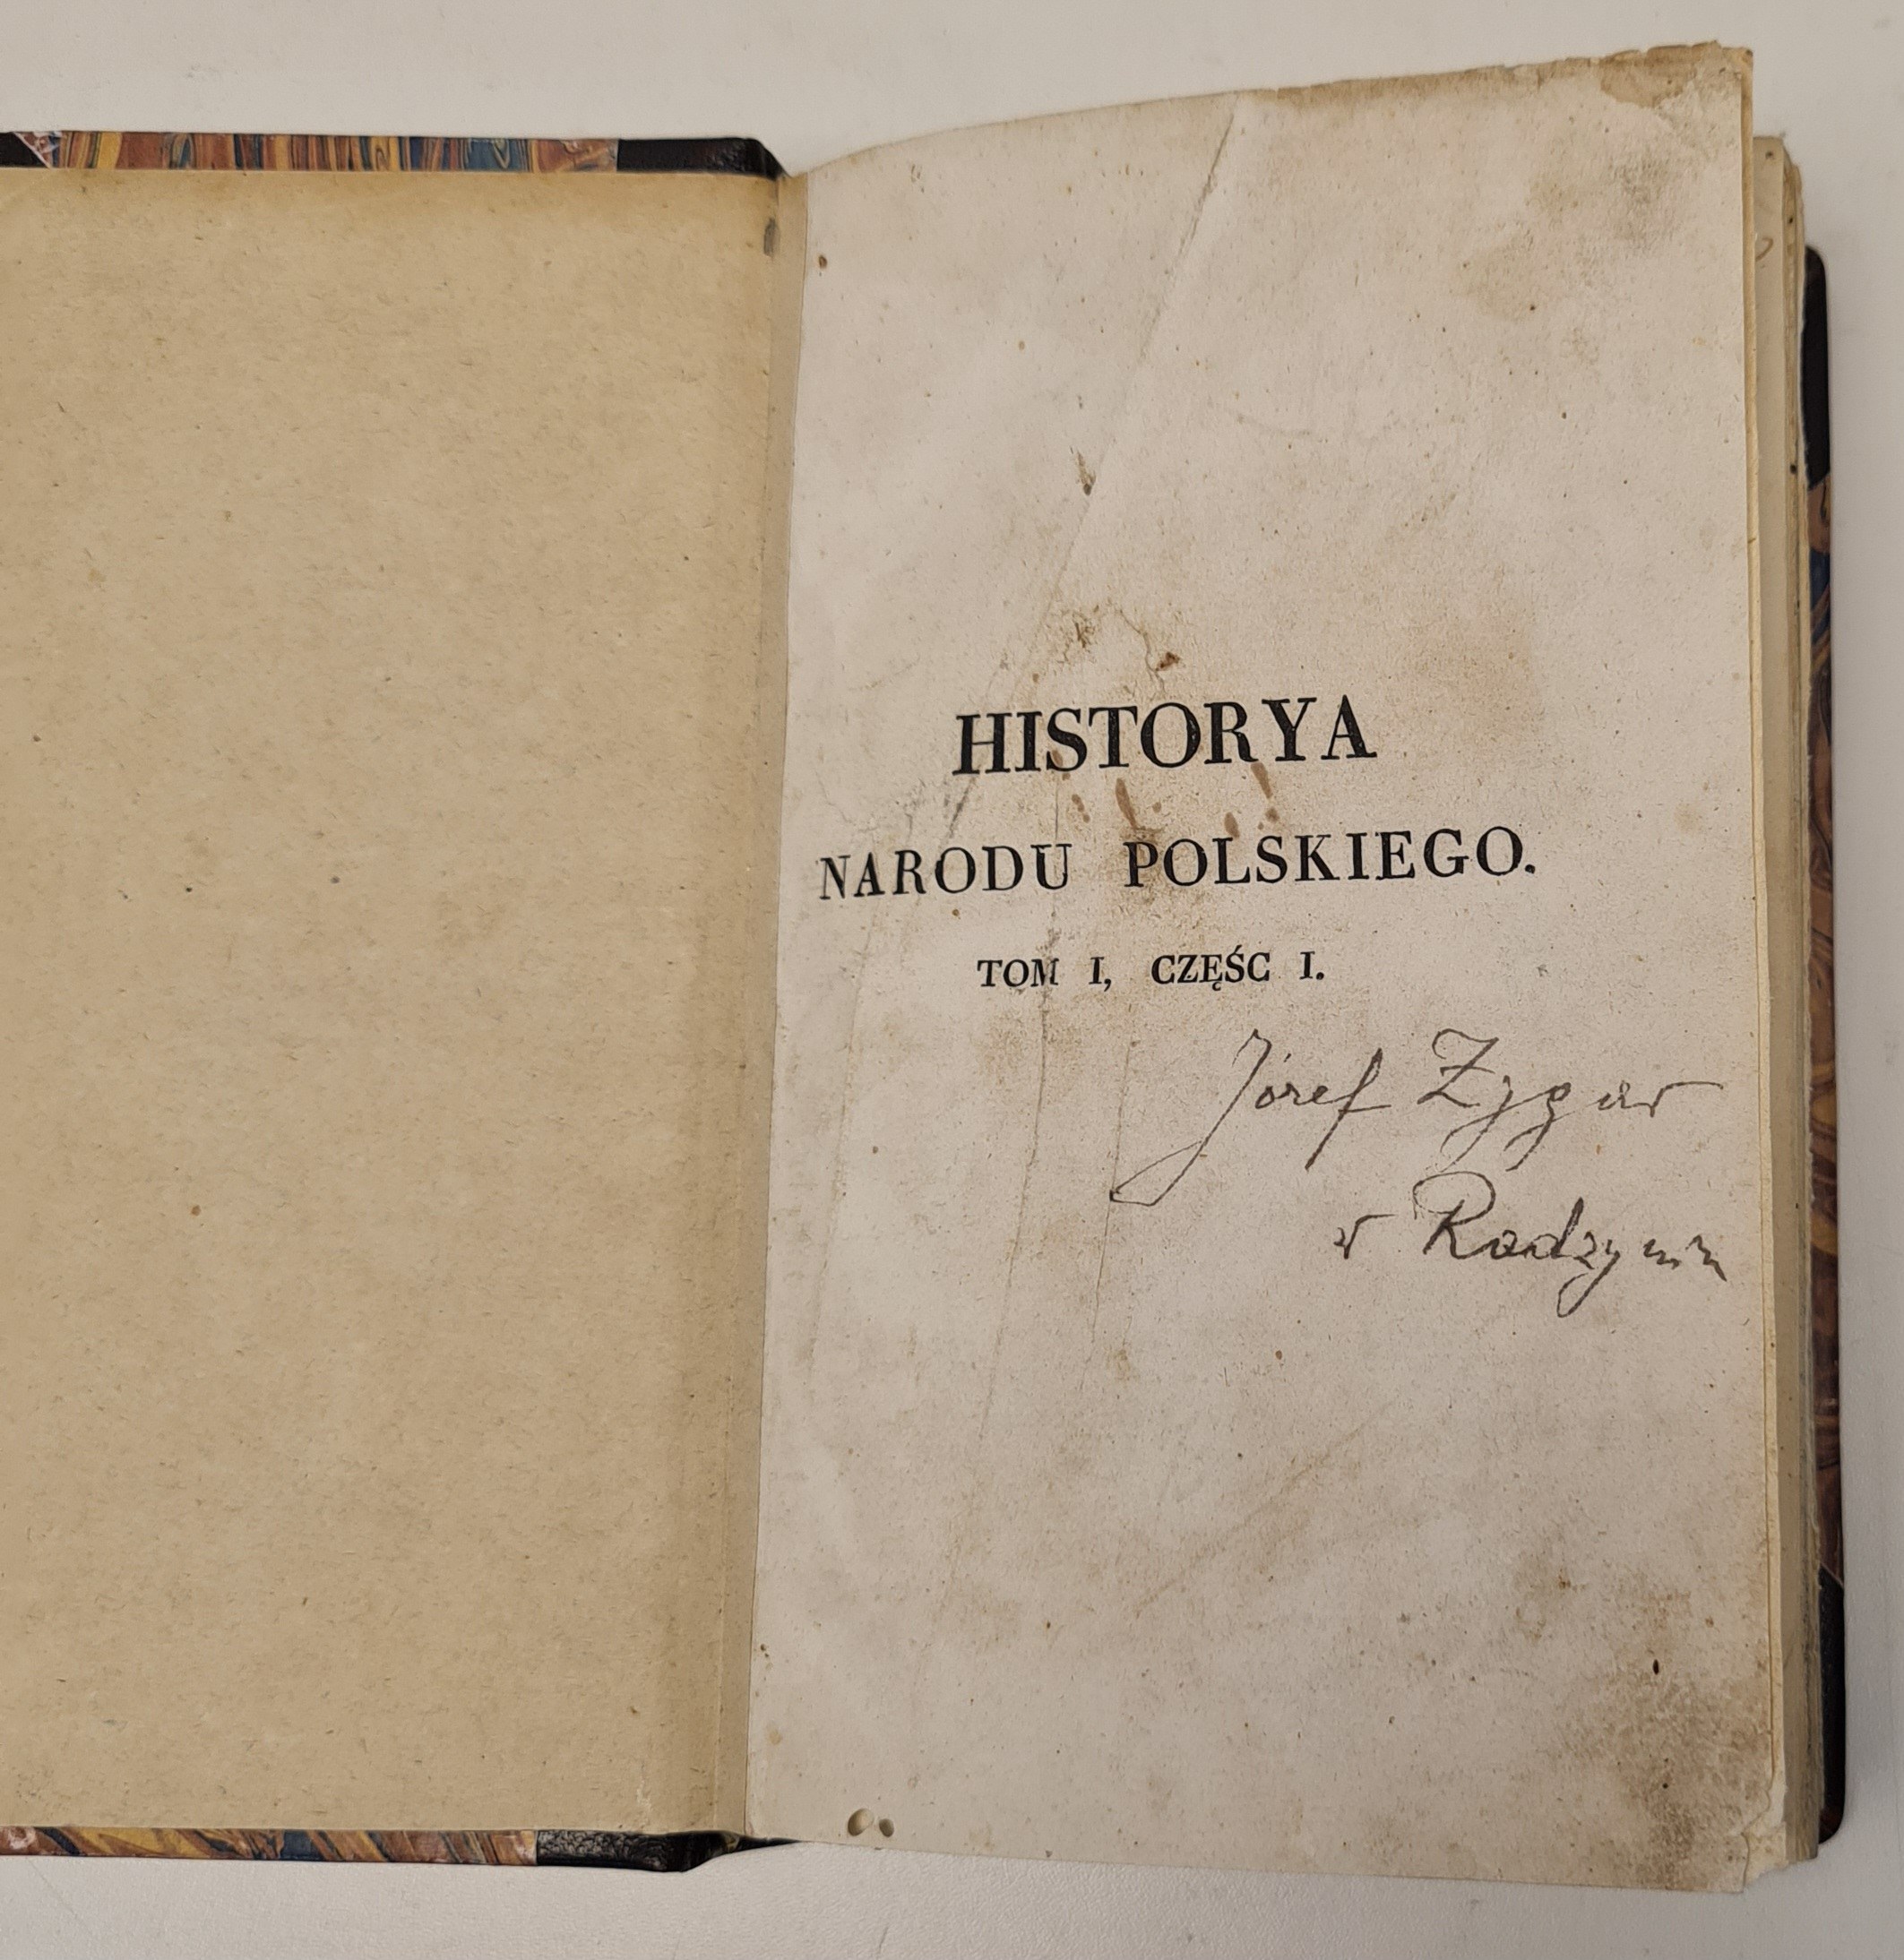 HISTORYA
NARODU POLSKIEGO.
TOM I, CZĘŚC I.
Józef
w Radzymin